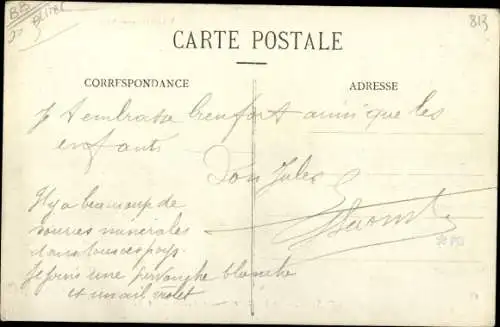 813
CARTE POSTALE
CORRESPONDANCE
ADRESSE
Je t'embrasse bien fort ainsi que les
enfants
Ton Jules
Il y a beaucoup de
sources minérales
dans tous ces pays
Je joins une pervenche blanche
et un œillet violet